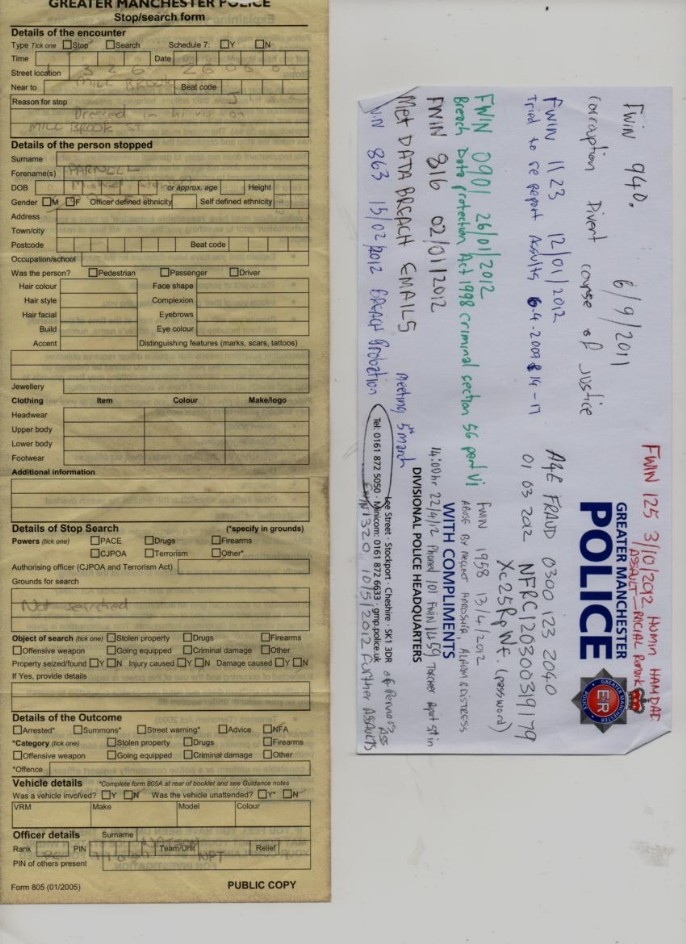 GREATER MANCHESTER POLICE
Stop/search form
Details of the encounter
Type Tick one Stop Search Schedule 7: Y N
Time Date
Street location
MILL BROOK
Near to Beat code
Reason for stop
Dressed in
MILL BROOK ST
Details of the person stopped
Surname PARNELL
Forename(s)
DOB or approx. age Height
Gender M F Officer defined ethnicity Self defined ethnicity
Address
Town/city
Postcode Beat code
Occupation/school
Was the person? Pedestrian Passenger Driver
Hair colour Face shape
Hair style Complexion
Hair facial Eyebrows
Build Eye colour
Accent Distinguishing features (marks, scars, tattoos)
Jewellery
Clothing Item Colour Make/logo
Headwear
Upper body
Lower body
Footwear
Additional information
Details of Stop Search (*specify in grounds)
Powers (tick one) PACE Drugs Firearms
CJPOA Terrorism Other*
Authorising officer (CJPOA and Terrorism Act)
Grounds for search
Not searched
Object of search (tick one) Stolen property Drugs Firearms
Offensive weapon Going equipped Criminal damage Other
Property seized/found Y N Injury caused Y N Damage caused Y N
If Yes, provide details
Details of the Outcome
Arrested* Summons* Street warning* Advice NFA
*Category (tick one) Stolen property Drugs Firearms
Offensive weapon Going equipped Criminal damage Other
*Offence
Vehicle details *Complete form 805A at rear of booklet and see Guidance notes
Was a vehicle involved? Y N Was the vehicle unattended? Y* N
VRM Make Model Colour
Officer details Surname
Rank PIN Team/Unit Relief
NPT
PIN of others present
Form 805 (01/2005) PUBLIC COPY
FWIN 940. 6/9/2011
corruption Divert course of Justice
FWIN 1123 12/01/2012
Tried to re report Assults 6-4-2009 & 14-11
FWIN 0901 26/01/2012
Breach Data protection Act 1998 criminal section 56 part VI
FWIN 816 02/01/2012
Met DATA BREACH EMAILS meeting 5th march
863 15/02/2012 BREACH Probation
FWIN 125 3/10/2012 Humin HAMDAD
ASSAULT - RACIAL
GREATER MANCHESTER
POLICE
GREATER MANCHESTER
EIIR
POLICE
Age FRAUD 0300 123 2040
01 03 2012 NFRC120300319179
Xc25RpWf. (password)
FWIN 1958 13/4/2012
ABUSE BY HARM & DISTRESS
WITH COMPLIMENTS
14:00hr 22/4/12 Phoned 101 FWIN 1459
DIVISIONAL POLICE HEADQUARTERS
Lee Street · Stockport · Cheshire · SK1 3DR
Tel: 0161 872 5050 · Minicom: 0161 872 6633 · gmp.police.uk
1320 10/5/2012 Further ASSAULTS